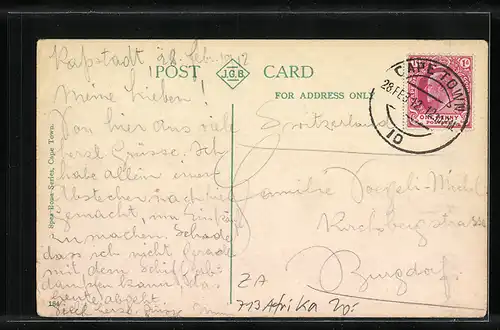 Kapstadt 28. Feb. 1912
POST J.G.B. CARD
FOR ADDRESS ONLY
CAPE TOWN
28 FE
10
ONE PENNY
Meine Lieben!
Von hier aus viele
herzl Grüsse. Ich
habe allein einen
Abstecher nach hier
gemacht, um Einkäufe
zu machen. Schade
dass ich nicht gerade
mit dem Schiff
dampfen kann, das
heute abgeht.
Switzerland
Familie Voegeli-Michel
Kirchbergstrasse
Burgdorf
ZA
713 Afrika
Spes Bona Series, Cape Town.